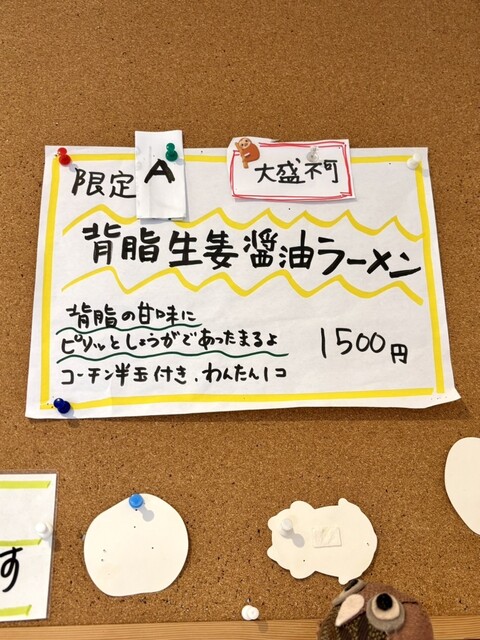 限定 A
大盛不可
背脂生姜醤油ラーメン
背脂の甘味に
ピリッとしょうがであったまるよ
1500円
コーチン半玉付き、わんたん1コ
す